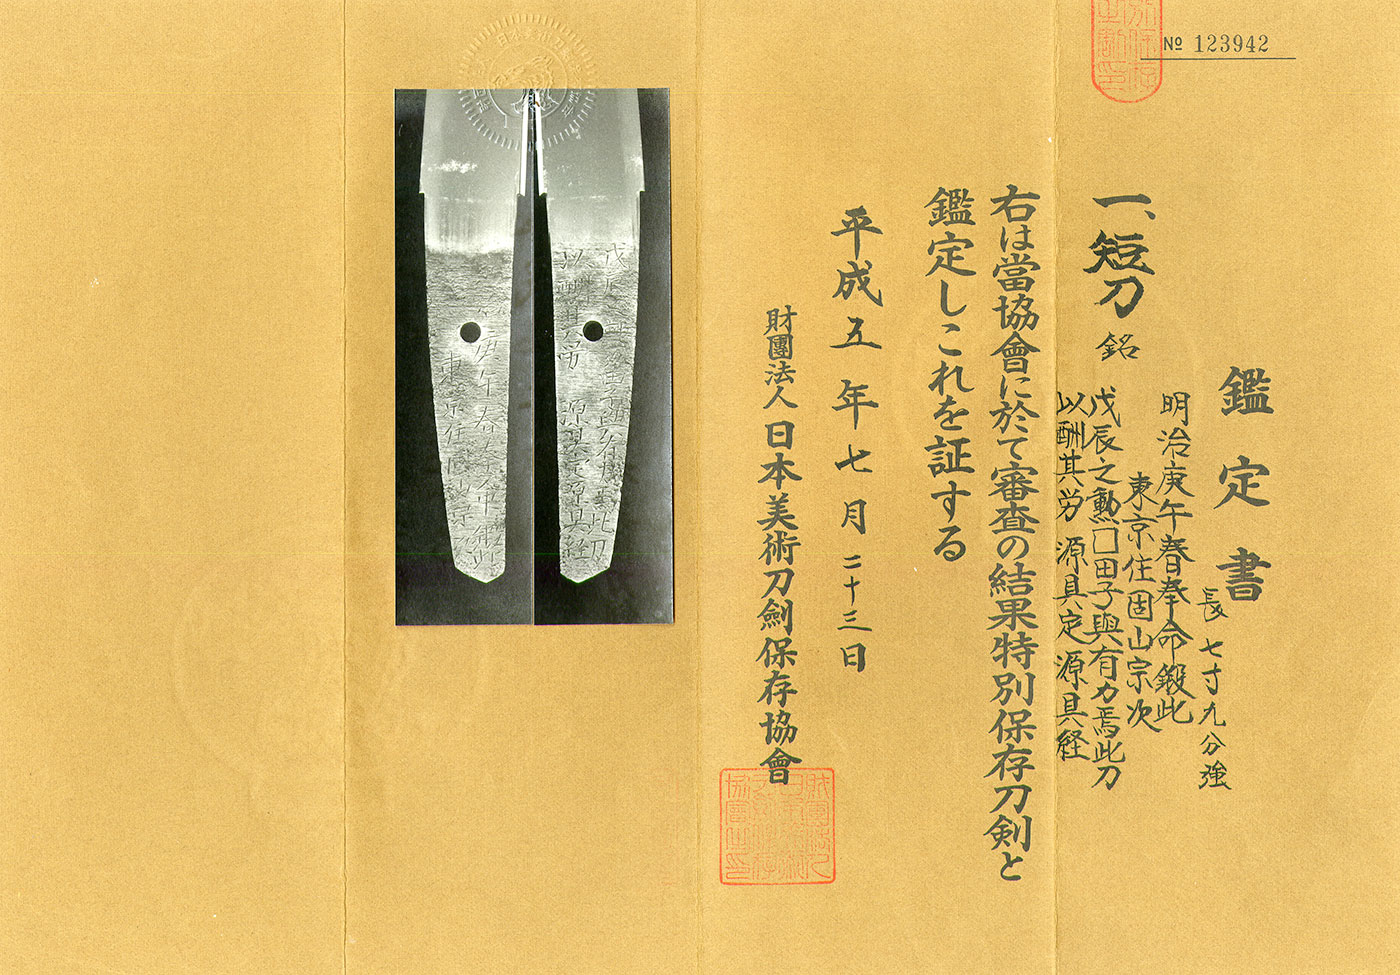 № 123942
鑑定書
一、短刀 銘
長七寸九分強
明治庚午春奉命鍛此
東京住固山宗次
戊辰之勲囗田子與有力焉此刀
以酬其労 源具定源具経
右は當協會に於て審査の結果特別保存刀剣と
鑑定しこれを証する
平成五年七月二十三日
財團法人日本美術刀劍保存協會